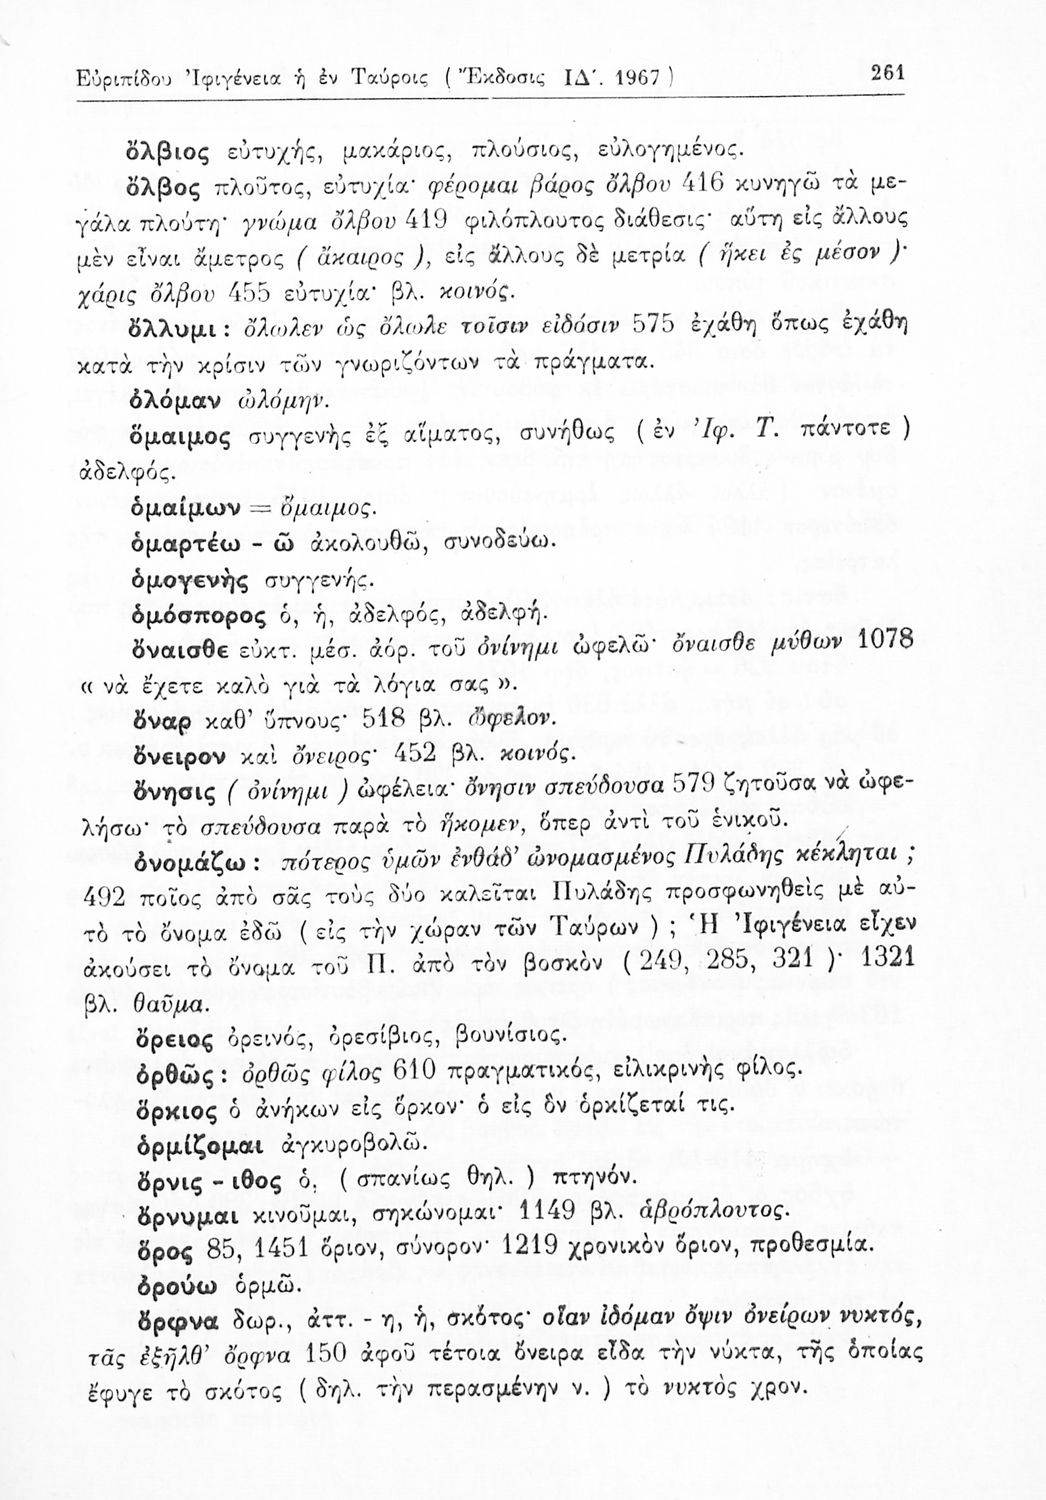 Εὐριπίδου Ἰφιγένεια ἡ ἐν Ταύροις ( Ἔκδοσις ΙΔ´. 1967 ) 261
ὄλβιος εὐτυχής, μακάριος, πλούσιος, εὐλογημένος.
ὄλβος πλοῦτος, εὐτυχία· φέρομαι βάρος ὄλβου 416 κυνηγῶ τὰ με-
γάλα πλούτη· γνώμα ὄλβου 419 φιλόπλουτος διάθεσις· αὕτη εἰς ἄλλους
μὲν εἶναι ἄμετρος ( ἄκαιρος ), εἰς ἄλλους δὲ μετρία ( ἥκει ἐς μέσον )·
χάρις ὄλβου 455 εὐτυχία· βλ. κοινός.
ὄλλυμι : ὄλωλεν ὡς ὄλωλε τοῖσιν εἰδόσιν 575 ἐχάθη ὅπως ἐχάθη
κατὰ τὴν κρίσιν τῶν γνωριζόντων τὰ πράγματα.
ὀλόμαν ὠλόμην.
ὅμαιμος συγγενὴς ἐξ αἵματος, συνήθως ( ἐν Ἰφ. Τ. πάντοτε )
ἀδελφός.
ὁμαίμων = ὅμαιμος.
ὁμαρτέω - ῶ ἀκολουθῶ, συνοδεύω.
ὁμογενὴς συγγενής.
ὁμόσπορος ὁ, ἡ, ἀδελφός, ἀδελφή.
ὄναισθε εὐκτ. μέσ. ἀόρ. τοῦ ὀνίνημι ὠφελῶ· ὄναισθε μύθων 1078
« νὰ ἔχετε καλὸ γιὰ τὰ λόγια σας ».
ὄναρ καθ’ ὕπνους· 518 βλ. ὤφελον.
ὄνειρον καὶ ὄνειρος· 452 βλ. κοινός.
ὄνησις ( ὀνίνημι ) ὠφέλεια· ὄνησιν σπεύδουσα 579 ζητοῦσα νὰ ὠφε-
λήσω· τὸ σπεύδουσα παρὰ τὸ ἥκομεν, ὅπερ ἀντὶ τοῦ ἑνικοῦ.
ὀνομάζω : πότερος ὑμῶν ἐνθάδ’ ὠνομασμένος Πυλάδης κέκληται ;
492 ποῖος ἀπὸ σᾶς τοὺς δύο καλεῖται Πυλάδης προσφωνηθεὶς μὲ αὐ-
τὸ τὸ ὄνομα ἐδῶ ( εἰς τὴν χώραν τῶν Ταύρων ) ; Ἡ Ἰφιγένεια εἶχεν
ἀκούσει τὸ ὄνομα τοῦ Π. ἀπὸ τὸν βοσκὸν ( 249, 285, 321 )· 1321
βλ. θαῦμα.
ὄρειος ὀρεινός, ὀρεσίβιος, βουνίσιος.
ὀρθῶς : ὀρθῶς φίλος 610 πραγματικός, εἰλικρινὴς φίλος.
ὅρκιος ὁ ἀνήκων εἰς ὅρκον· ὁ εἰς ὃν ὁρκίζεταί τις.
ὁρμίζομαι ἀγκυροβολῶ.
ὄρνις - ιθος ὁ, ( σπανίως θηλ. ) πτηνόν.
ὄρνυμαι κινοῦμαι, σηκώνομαι· 1149 βλ. ἁβρόπλουτος.
ὅρος 85, 1451 ὅριον, σύνορον· 1219 χρονικὸν ὅριον, προθεσμία.
ὀρούω ὁρμῶ.
ὄρφνα δωρ., ἀττ. - η, ἡ, σκότος· οἵαν ἰδόμαν ὄψιν ὀνείρων νυκτός,
τᾶς ἐξῆλθ’ ὄρφνα 150 ἀφοῦ τέτοια ὄνειρα εἶδα τὴν νύκτα, τῆς ὁποίας
ἔφυγε τὸ σκότος ( δηλ. τὴν περασμένην ν. ) τὸ νυκτὸς χρον.